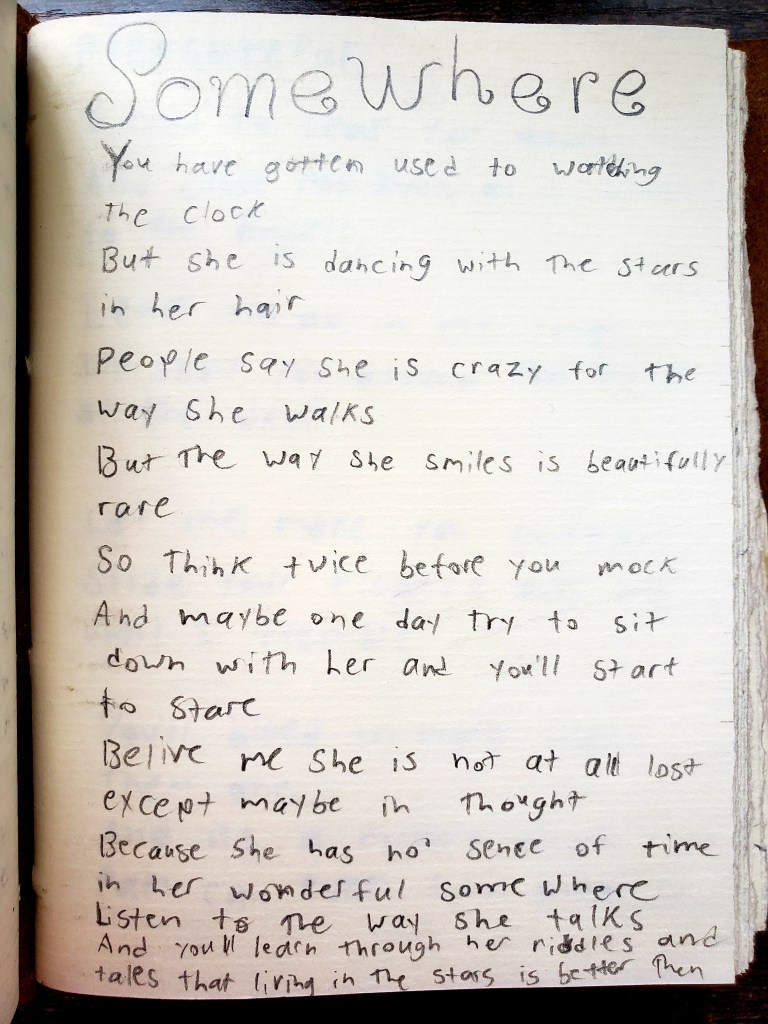 Somewhere
You have gotten used to watching
the clock
But she is dancing with the stars
in her hair
People say she is crazy for the
way she walks
But the way she smiles is beautifully
rare
So think twice before you mock
And maybe one day try to sit
down with her and you'll start
to stare
Belive me she is not at all lost
except maybe in thought
Because she has no sence of time
in her wonderful somewhere
Listen to the way she talks
And you'll learn through her riddles and
tales that living in the stars is better then